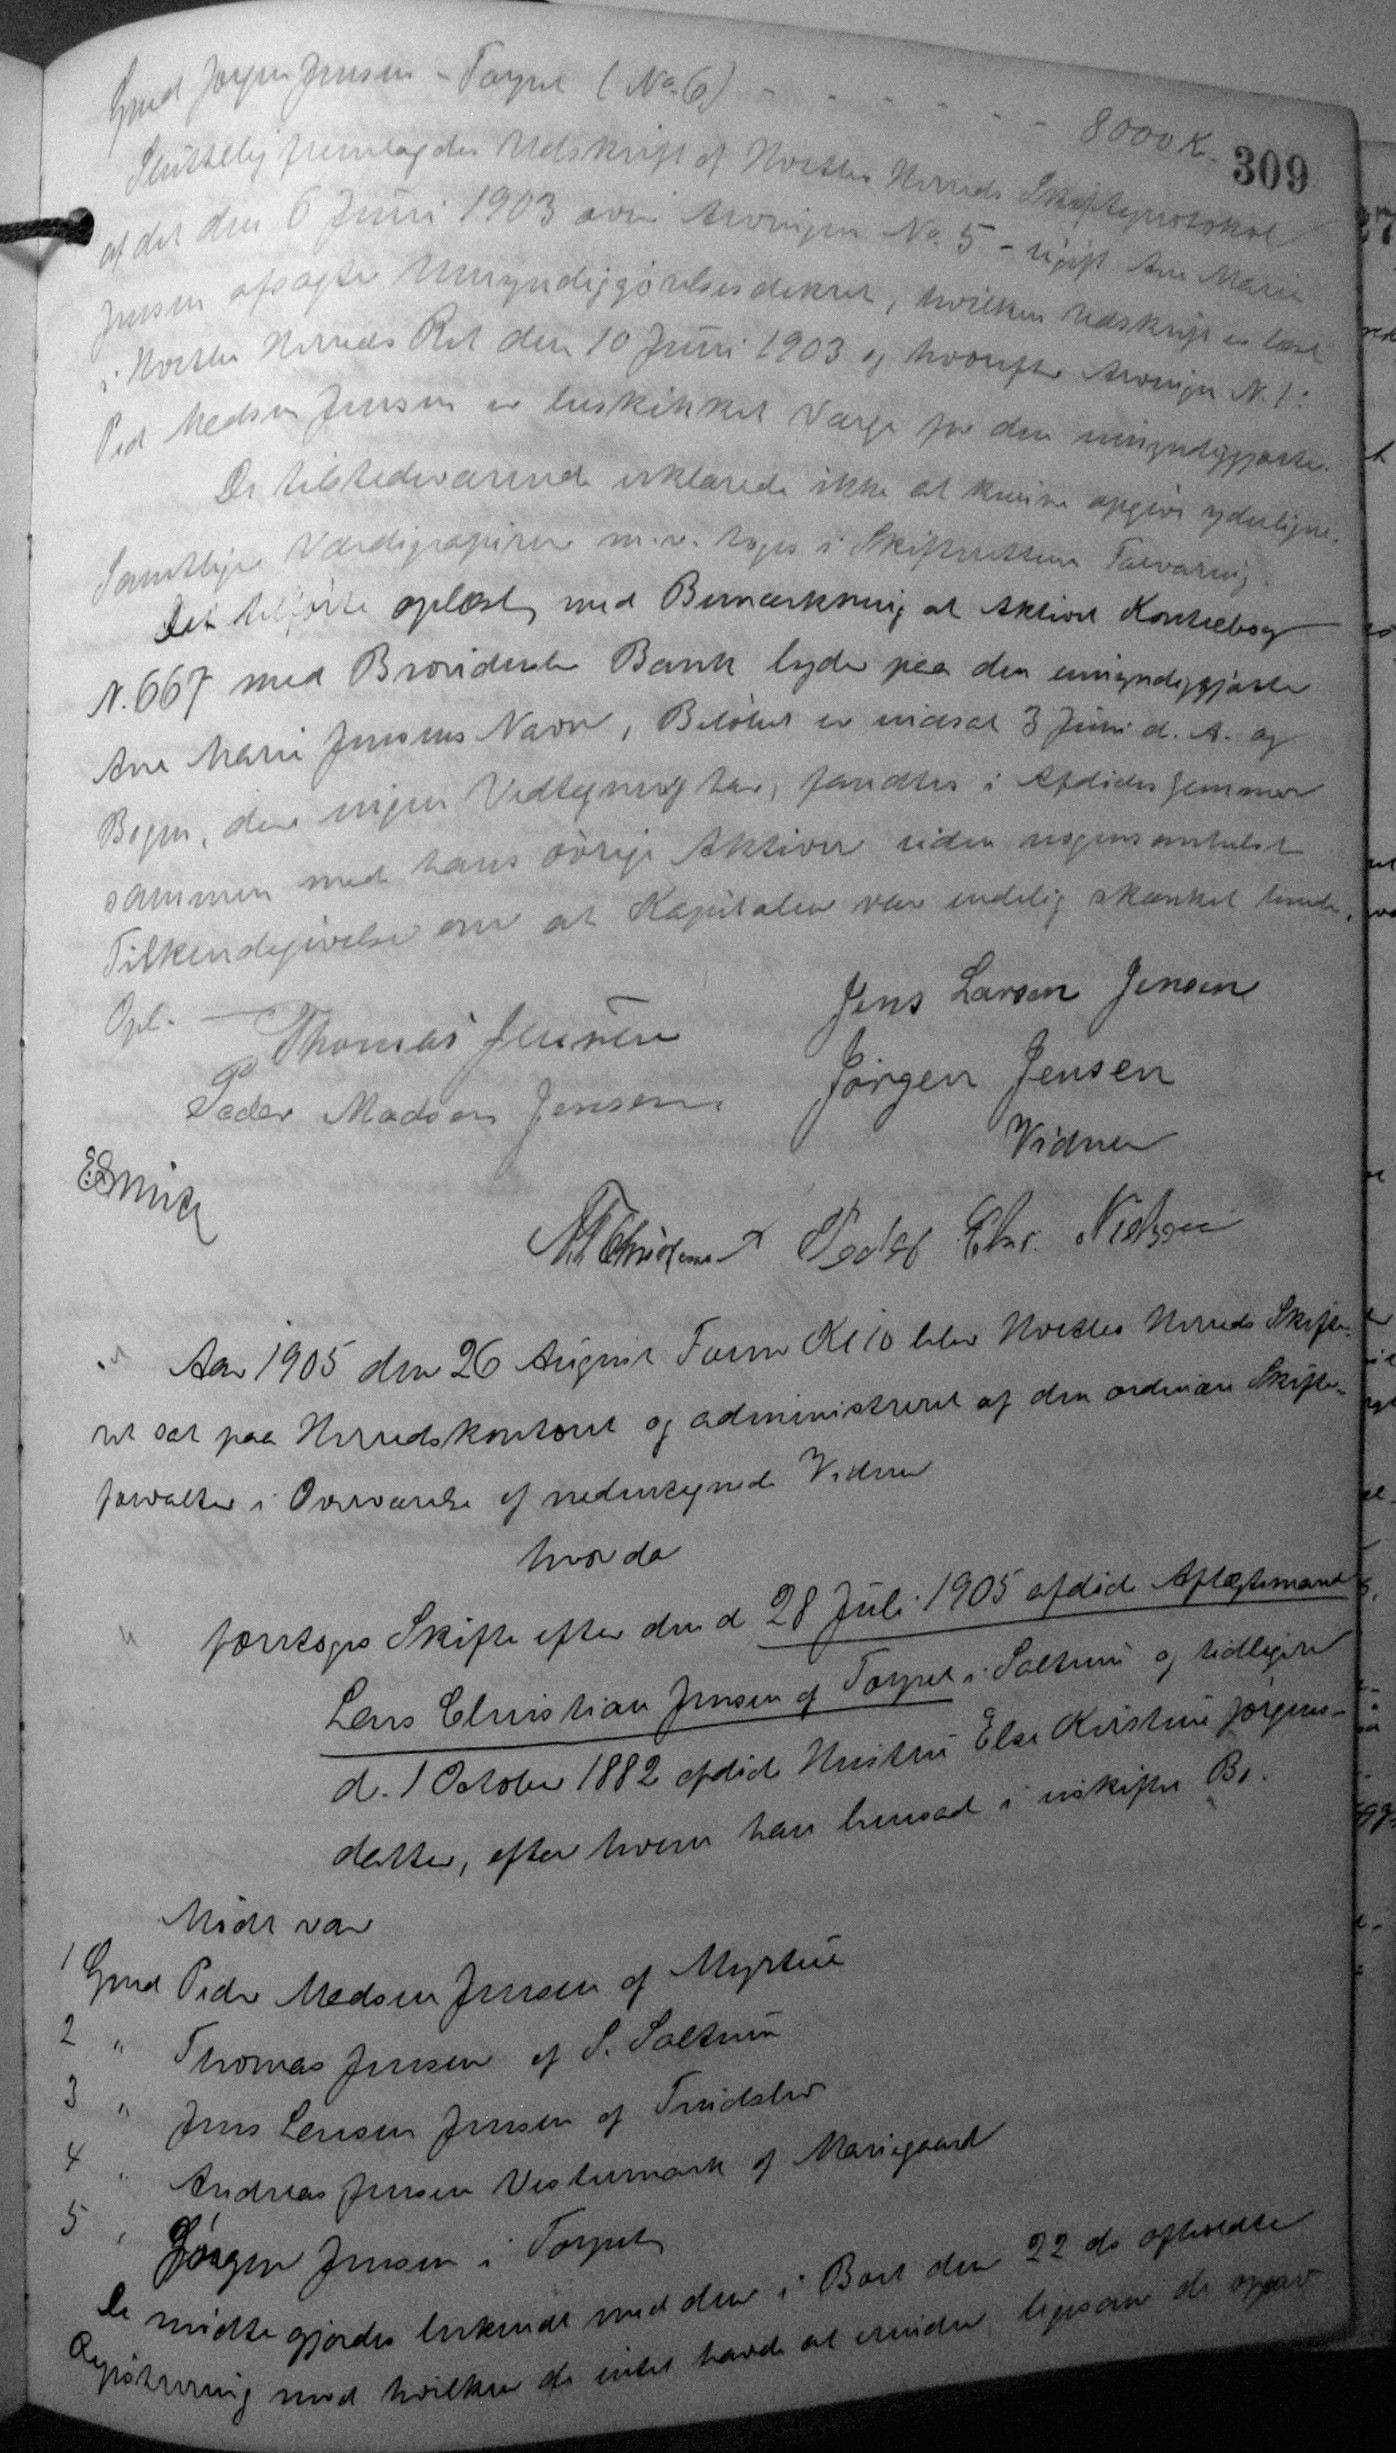 309
Gmd Jørgen Jensen - Torpet (No. 6) - - - - - - 8000 K.
Sluttelig fremlagdes Udskrift af Hvetbo Herreds Skifteprotokol
af det den 6 Juni 1903 over Arvingen No. 5 - ugift Ane Marie
Jensen afsagte Umyndiggørelsesdekret, hvilken Udskrift er læst
i Hvetbo Herreds Ret den 10 Juni 1903 og hvorefter Arving N. 1:
Ped Madsen Jensen er beskikket Værge for den umyndiggjorte.
De tilstedeværende erklærede ikke at kunne opgive yderligere.
Samtlige Værdipapirer m.v. toges i Skifterettens Forvaring.
Det tilførte oplæst, med Bemærkning at Aktivet Kontrabog
N. 667 med Brovdrende Bank lyder paa den umyndiggjorte
Ane Marie Jensens Navn, Beløbet er indsat 3 Juni d. A. og
Bogen, der ingen Vedtegning har, fandtes i Afdødes Gemmer
sammen med hans øvrige Aktiver uden nogensomhelst
Tilkendegivelse om at Kapitalen var endelig skænket hende.
Opl. - Thomas Jensen Jens Larsen Jensen
Peder Madsen Jensen. Jørgen Jensen
Vidner
Peder Chr. Nielsen
Aar 1905 den 26 August Form Kl 10 blev Hvetbo Herreds Skifte-
ret sat paa Herredskontoret og administreret af den ordinære Skifte-
forvalter i Overværelse af nedentegnede Vidner
hvor da
foretoges Skifte efter den d 28 Juli 1905 afdøde Aftægtsmand
Lars Christian Jensen af Torpet i Saltum og tidligere
d. 1 October 1882 afdøde Hustru Else Kirstine Jørgens-
datter, efter hvem han hensad i uskiftet Bo.
Mødt var
1 Gmd Peder Madsen Jensen af Myrtue
2 " Thomas Jensen af S. Saltum
3 " Jens Larsen Jensen af
4 " Andreas Jensen Vestermark af Mariegaard
5 " Jørgen Jensen i Torpet
De mødte gjordes bekendt med den i Boet den 22 ds afholdte
Registrering mod hvilken de intet havde at erindre, ligesom de opgav